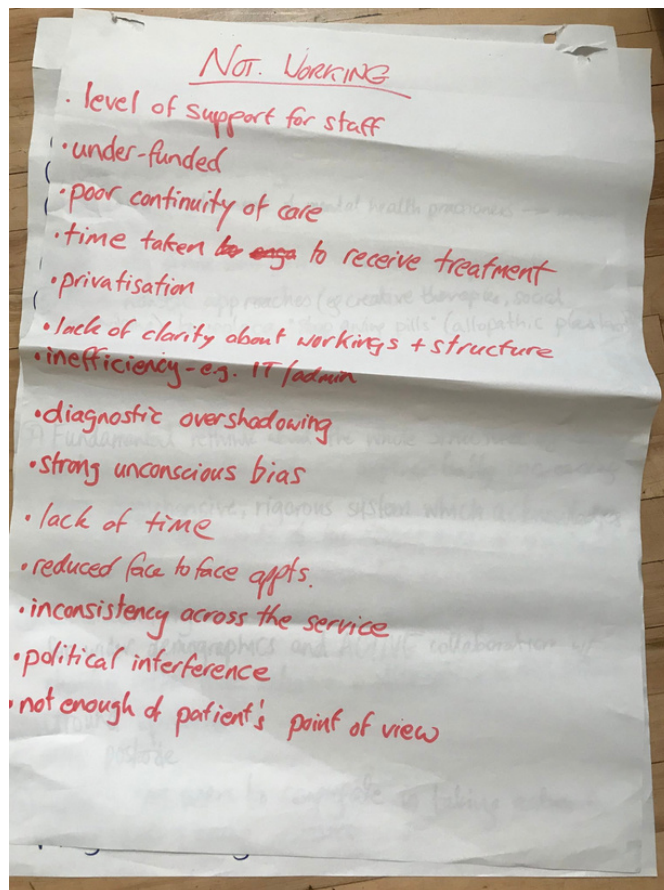 NOT. WORKING
· level of support for staff
· under-funded
· poor continuity of care
· time taken to receive treatment
· privatisation
· lack of clarity about workings + structure
· inefficiency - e.g. IT/admin
· diagnostic overshadowing
· strong unconscious bias
· lack of time
· reduced face to face appts.
· inconsistency across the service
· political interference
· not enough of patient's point of view